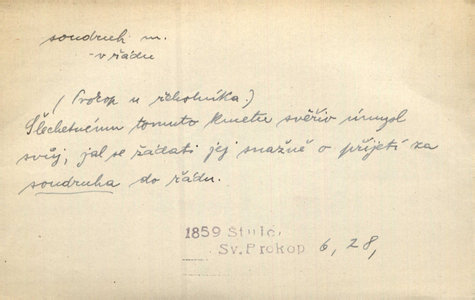 soudruh m.
- v řádu
(Prokop u řeholníka.)
Šlechetnému tomuto kmetu svěřiv úmysl
svůj, jal se žádati jej snažně o přijetí za
soudruha do řádu.
1859 Štulc,
Sv. Prokop 6, 28,